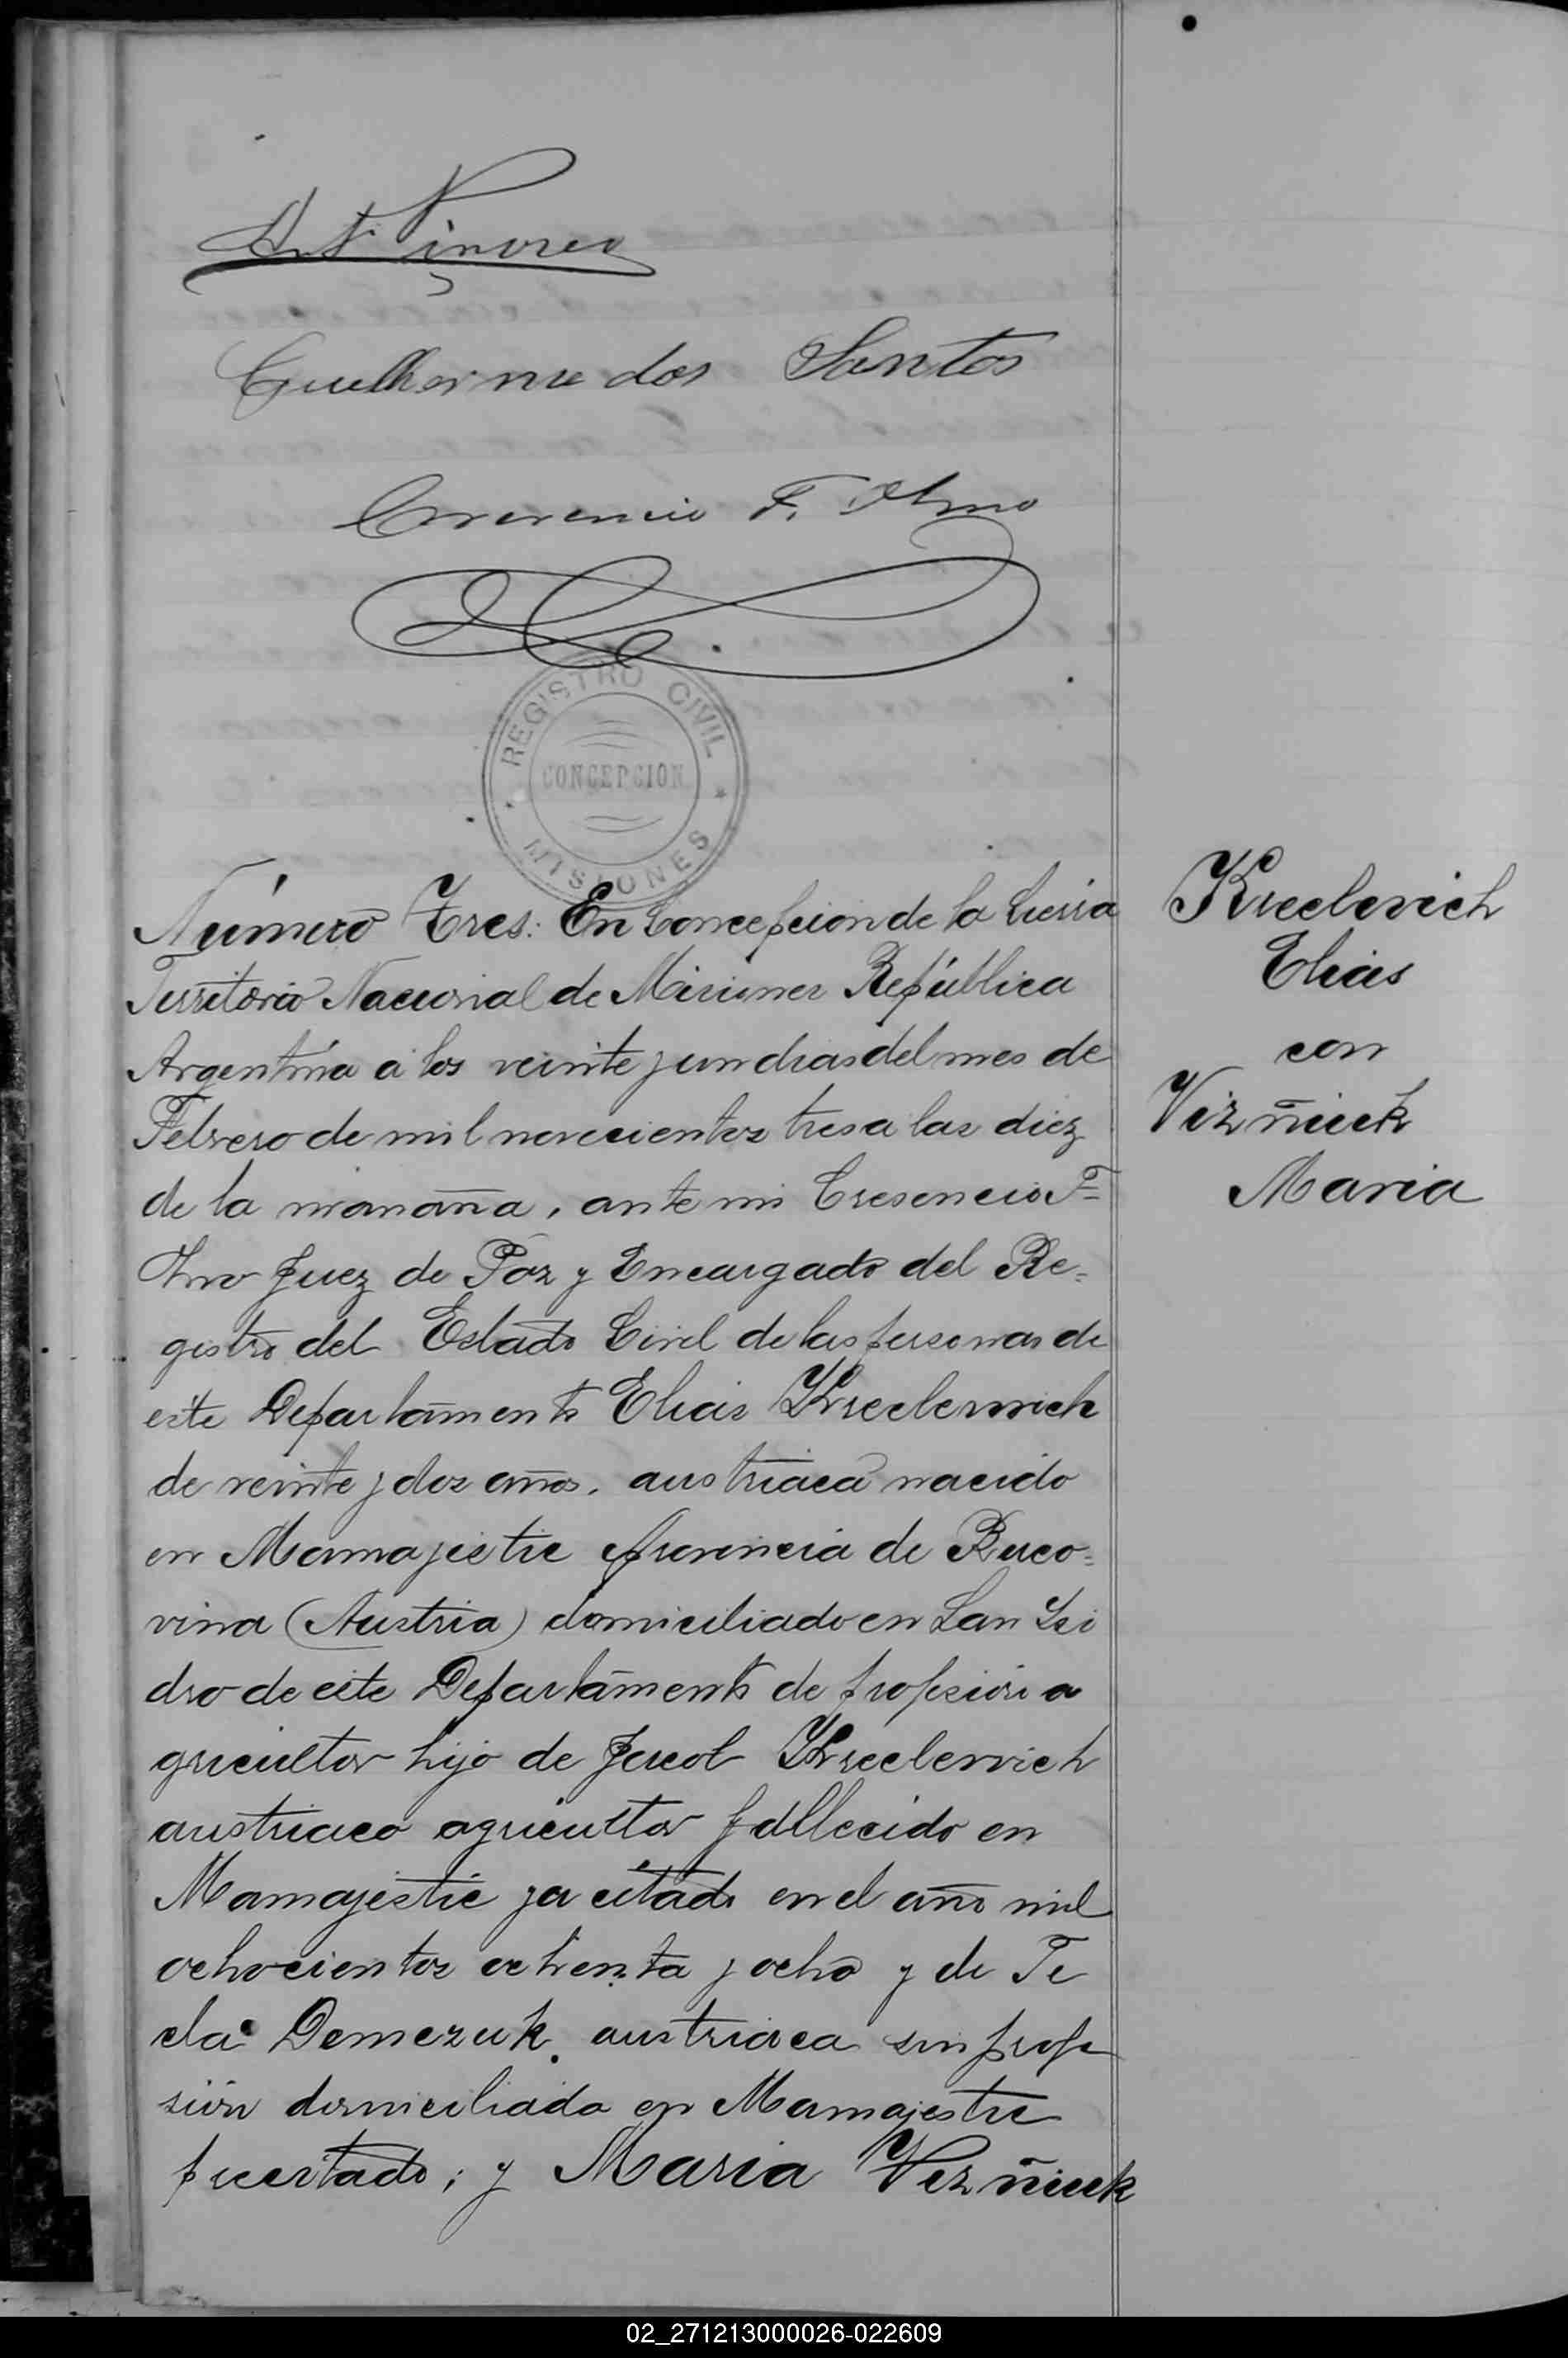 Guelherme dos Santos
Crecencio F. Ibno
REGISTRO CIVIL
CONCEPCION
MISIONES
Número Tres: En Concepcion de la Sierra
Territorio Nacional de Misiones República
Argentina á los veinte y un dias del mes de
Febrero de mil novecientos tres a las diez
de la mañana, ante mi Cresencio F=
Juez de Paz y Encargado del Re=
gistro del Estado Civil de las personas de
este Departamento Elias Kreclevvich
de veinte y dos años, austriaca nacido
en Mamajestie provincia de Buco=
vina (Austria) domiciliado en San Isi
dro de este Departamento de profesion a
gricultor hijo de Jacob Kreclevvich
austriaco agricultor fallecido en
Mamajestie ya citado en el año mil
ochocientos ochenta y ocho y de Te
cla Demczuk, austriaca sin profe
sión domiciliada en Mamajestie
precitado; y Maria Vizñiuk
Kreclevich
Elias
con
Vizñiuk
Maria
02_271213000026-022609